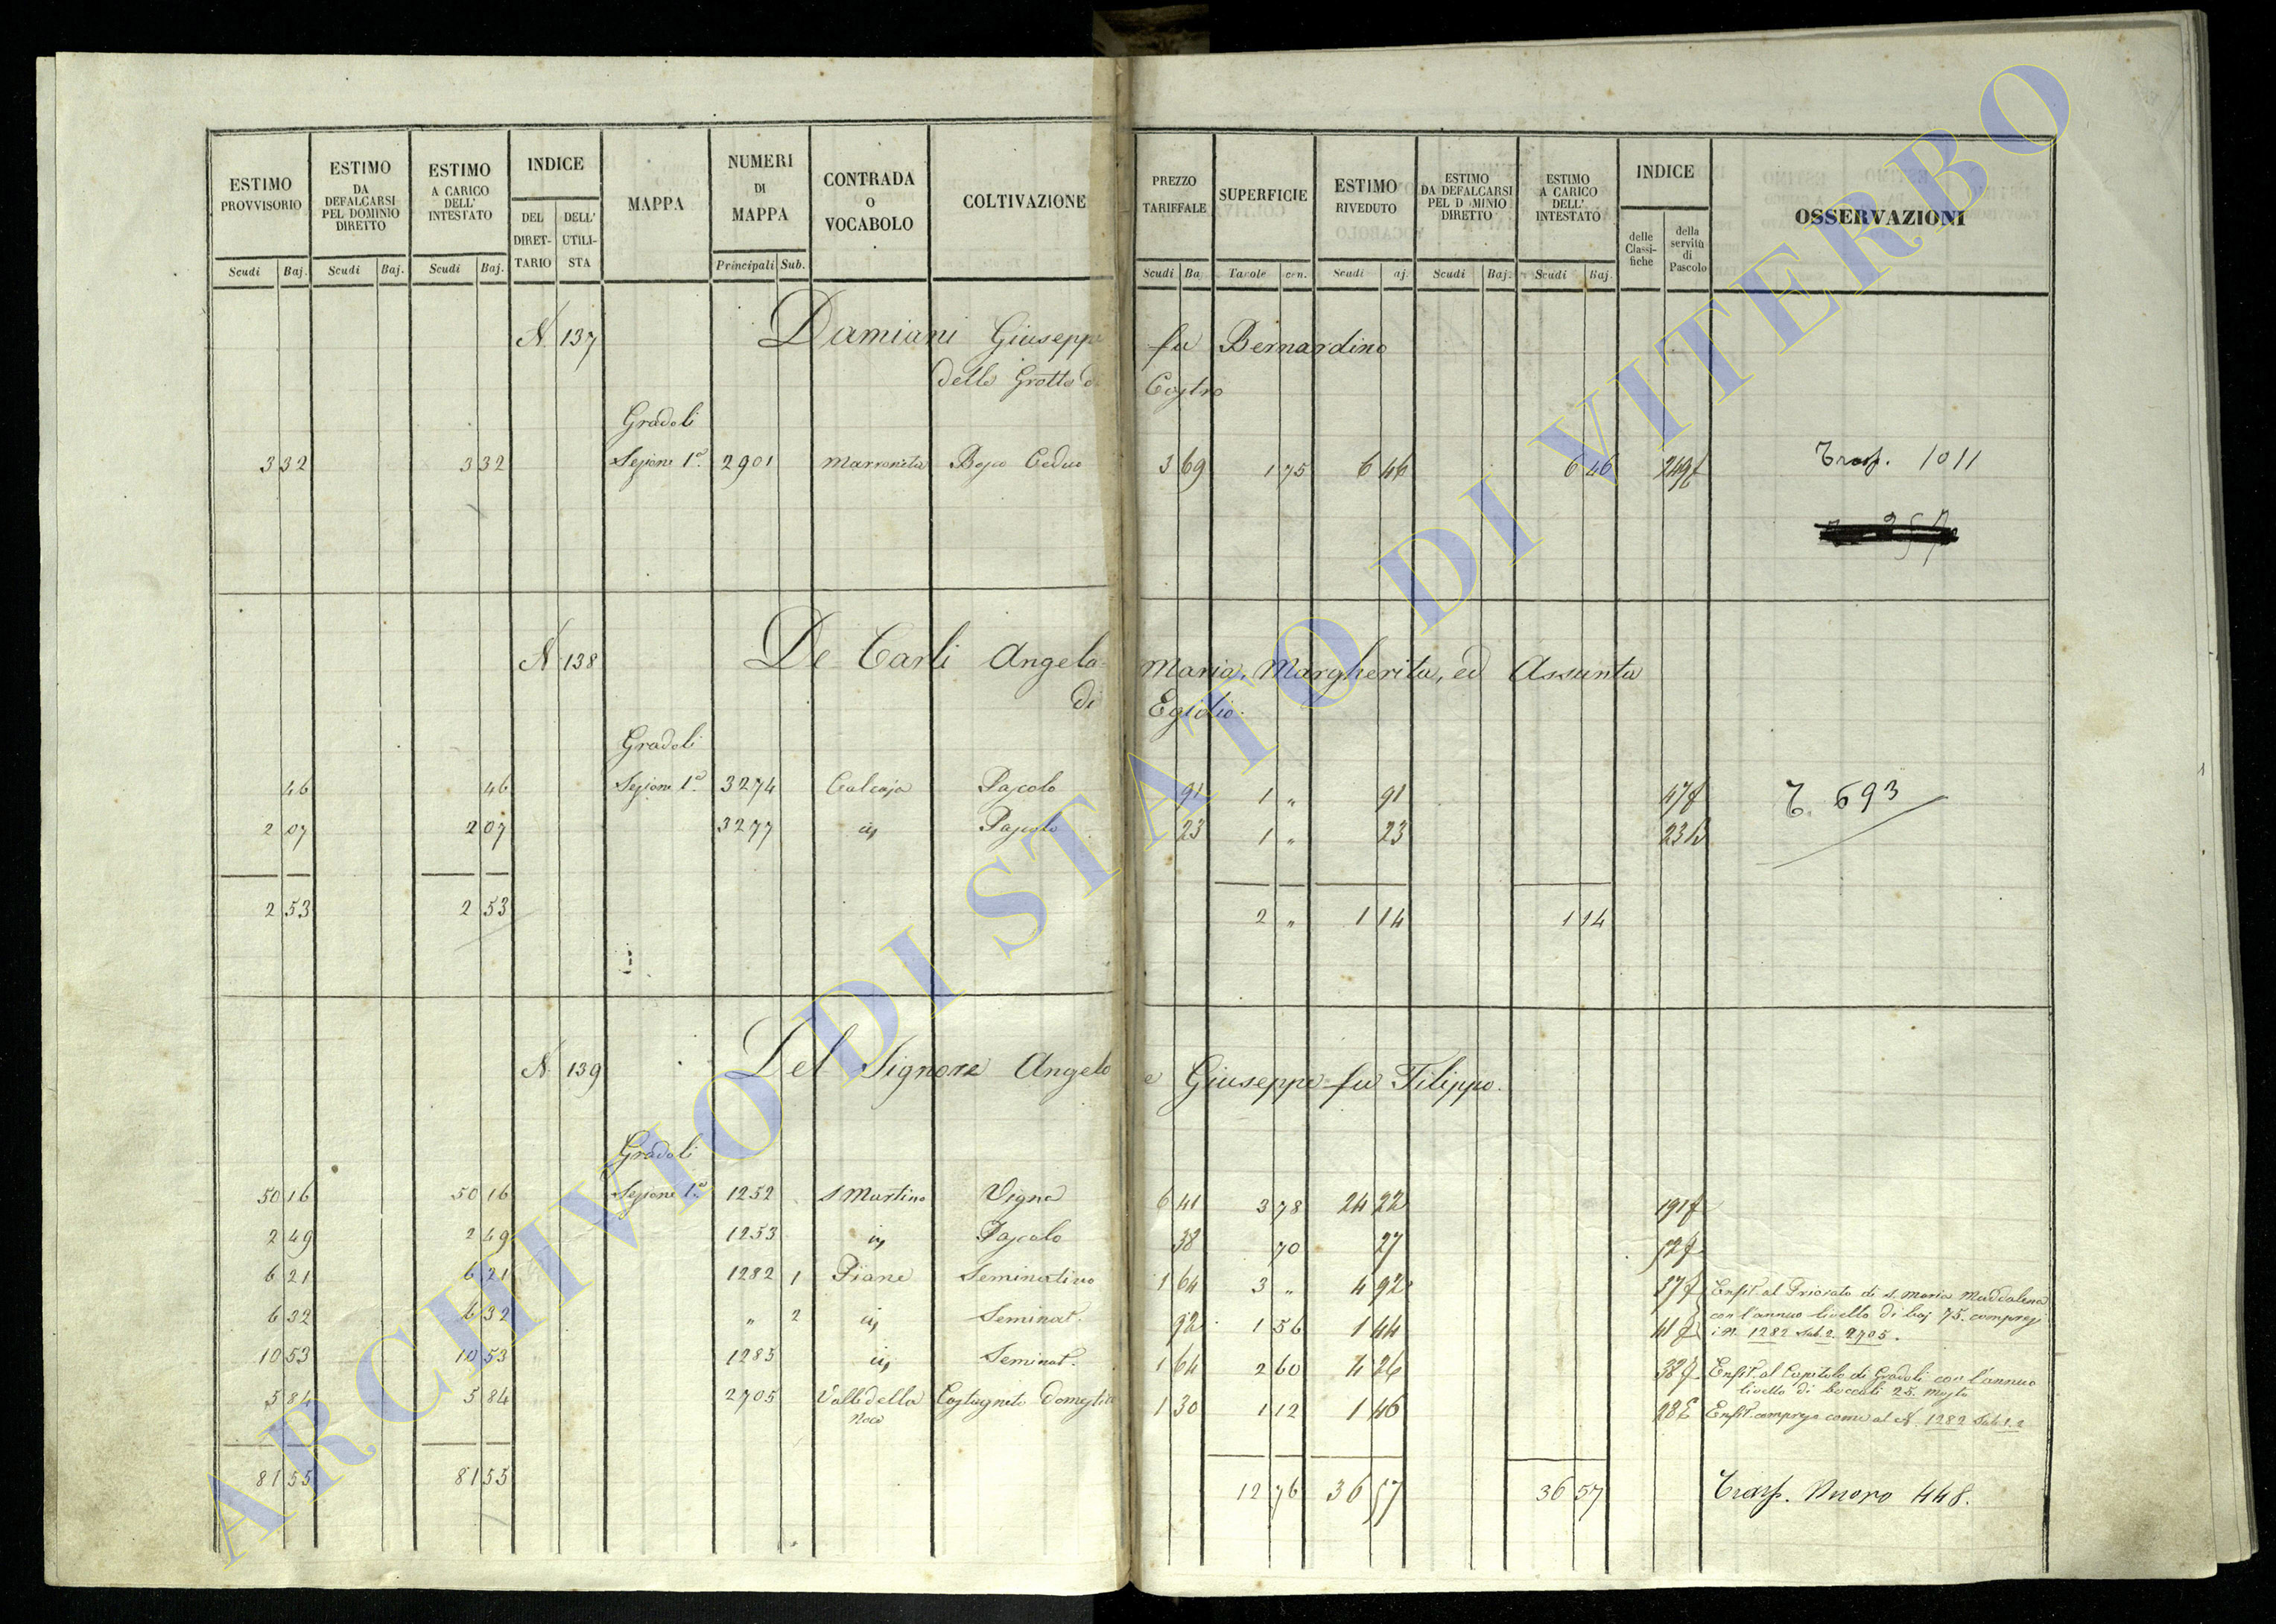 ESTIMO PROVVISORIO Scudi Baj.
ESTIMO DA DEFALCARSI PEL DOMINIO DIRETTO Scudi Baj.
ESTIMO A CARICO DELL' INTESTATO Scudi Baj.
INDICE DEL DIRETTARIO DELL' UTILISTA
MAPPA
NUMERI DI MAPPA Principali Sub.
CONTRADA O VOCABOLO
COLTIVAZIONE
PREZZO TARIFFALE Scudi Ba
SUPERFICIE Tavole cen.
ESTIMO RIVEDUTO Scudi aj.
ESTIMO DA DEFALCARSI PEL D MINIO DIRETTO Scudi Baj.
ESTIMO A CARICO DELL' INTESTATO Scudi Baj.
INDICE delle Classifiche della servitù di Pascolo
OSSERVAZIONI
N. 137 Damiani Giuseppe fu Bernardino
delle Grotte di Castro
Gradoli
3 32 3 32 Sezione 1ª 2901 Marroneta Bosco Ceduo 3 69 1 75 6 46 6 46 249 f Trasp. 1011
N. 138 De Carli Angela Maria, Margherita, ed Assunta
di Egidio.
Gradoli
46 46 Sezione 1ª 3274 Pascolo 91 1 " 91 47 f T. 693
2 07 2 07 3277 id Pascolo 23 1 " 23 23 b
2 53 2 53 2 " 1 14 1 14
N. 139 Del Signore Angelo e Giuseppe fu Filippo.
Gradoli
50 16 50 16 Sezione 1ª 1252 S Martino Vigna 6 41 3 78 24 22 191 f
2 49 2 49 1253 id Pascolo 38 70 27 52 f
6 21 6 21 1282 1 Piane Seminativo 1 64 3 " 4 92 37 f Enfit. al Priorato di S. Maria Maddalena
con l'annuo livello di baj 75. compresi
6 32 6 32 " 2 id Seminat. 92 1 56 1 44 41 f i N. 1282 Sub. 2. 2705.
10 53 10 53 1285 id Seminat. 1 64 2 60 4 26 38 f Enfit. al Capitolo di Gradoli con l'annuo
livello di boccali 25. Mosto
5 84 5 84 2705 Valle della Noce Castagneto Domestico 1 30 1 12 1 46 28 E Enfit. compresa come al N. 1282 Sub 1.2
81 55 81 55 12 76 36 57 36 57 Trasp. Nuovo 448.
ARCHIVIO DI STATO DI VITERBO